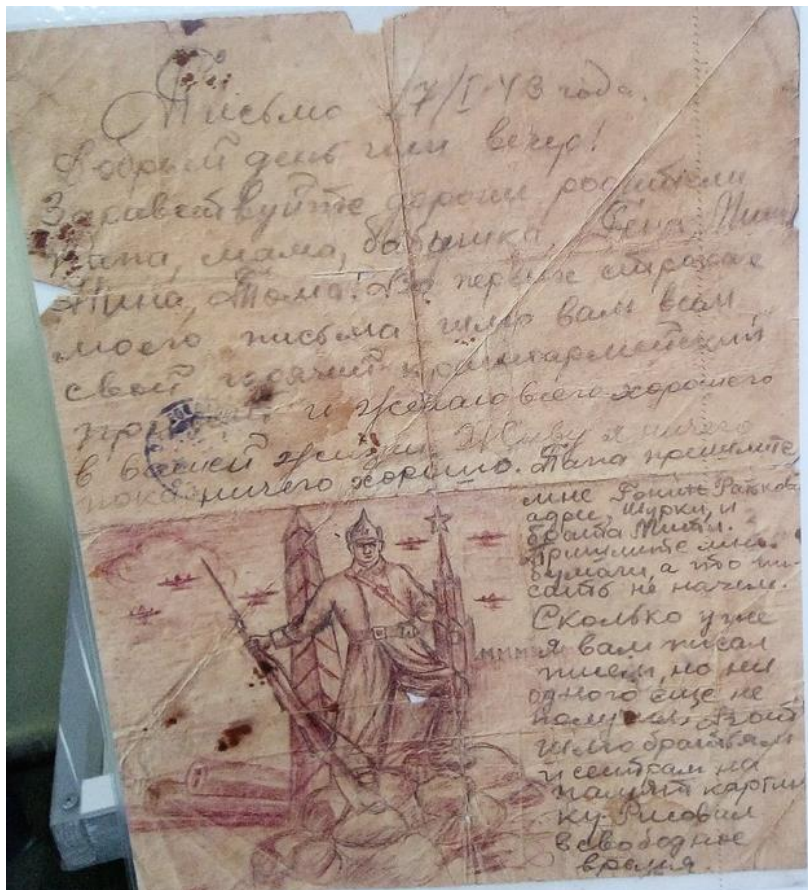 Письмо 17/I-43 года.
Добрый день или вечер!
Здравствуйте дорогие родители
папа, мама, бабушка, Гена
Нина, Тома! Во первых строках
моего письма шлю вам всем
свой горячий красноармейский
и желаю всего хорошего
в вашей жизни. Живу я ничего
пока ничего хорошо. Папа пришлите
мне
адрес, Шурки, и
брата Мити.
Пришлите мне
бумаги, а то пи-
сать не начем.
Сколько уже
я вам писал
писем, но ни
одного еще не
получил.
шлю братьям
и сестрам на
память картин-
ку. Рисовал
в свободное
время.